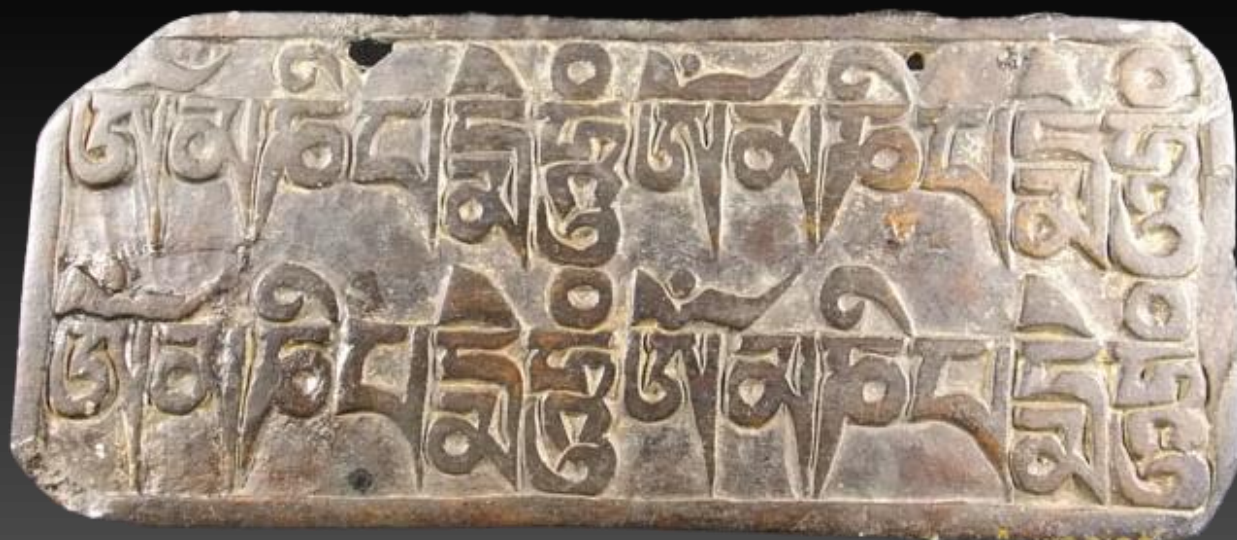 ༀ་མ་ཎི་པ་དྨེ་ཧཱུྃ་ༀ་མ་ཎི་པ་དྨེ་ཧཱུྃ
ༀ་མ་ཎི་པ་དྨེ་ཧཱུྃ་ༀ་མ་ཎི་པ་དྨེ་ཧཱུྃ